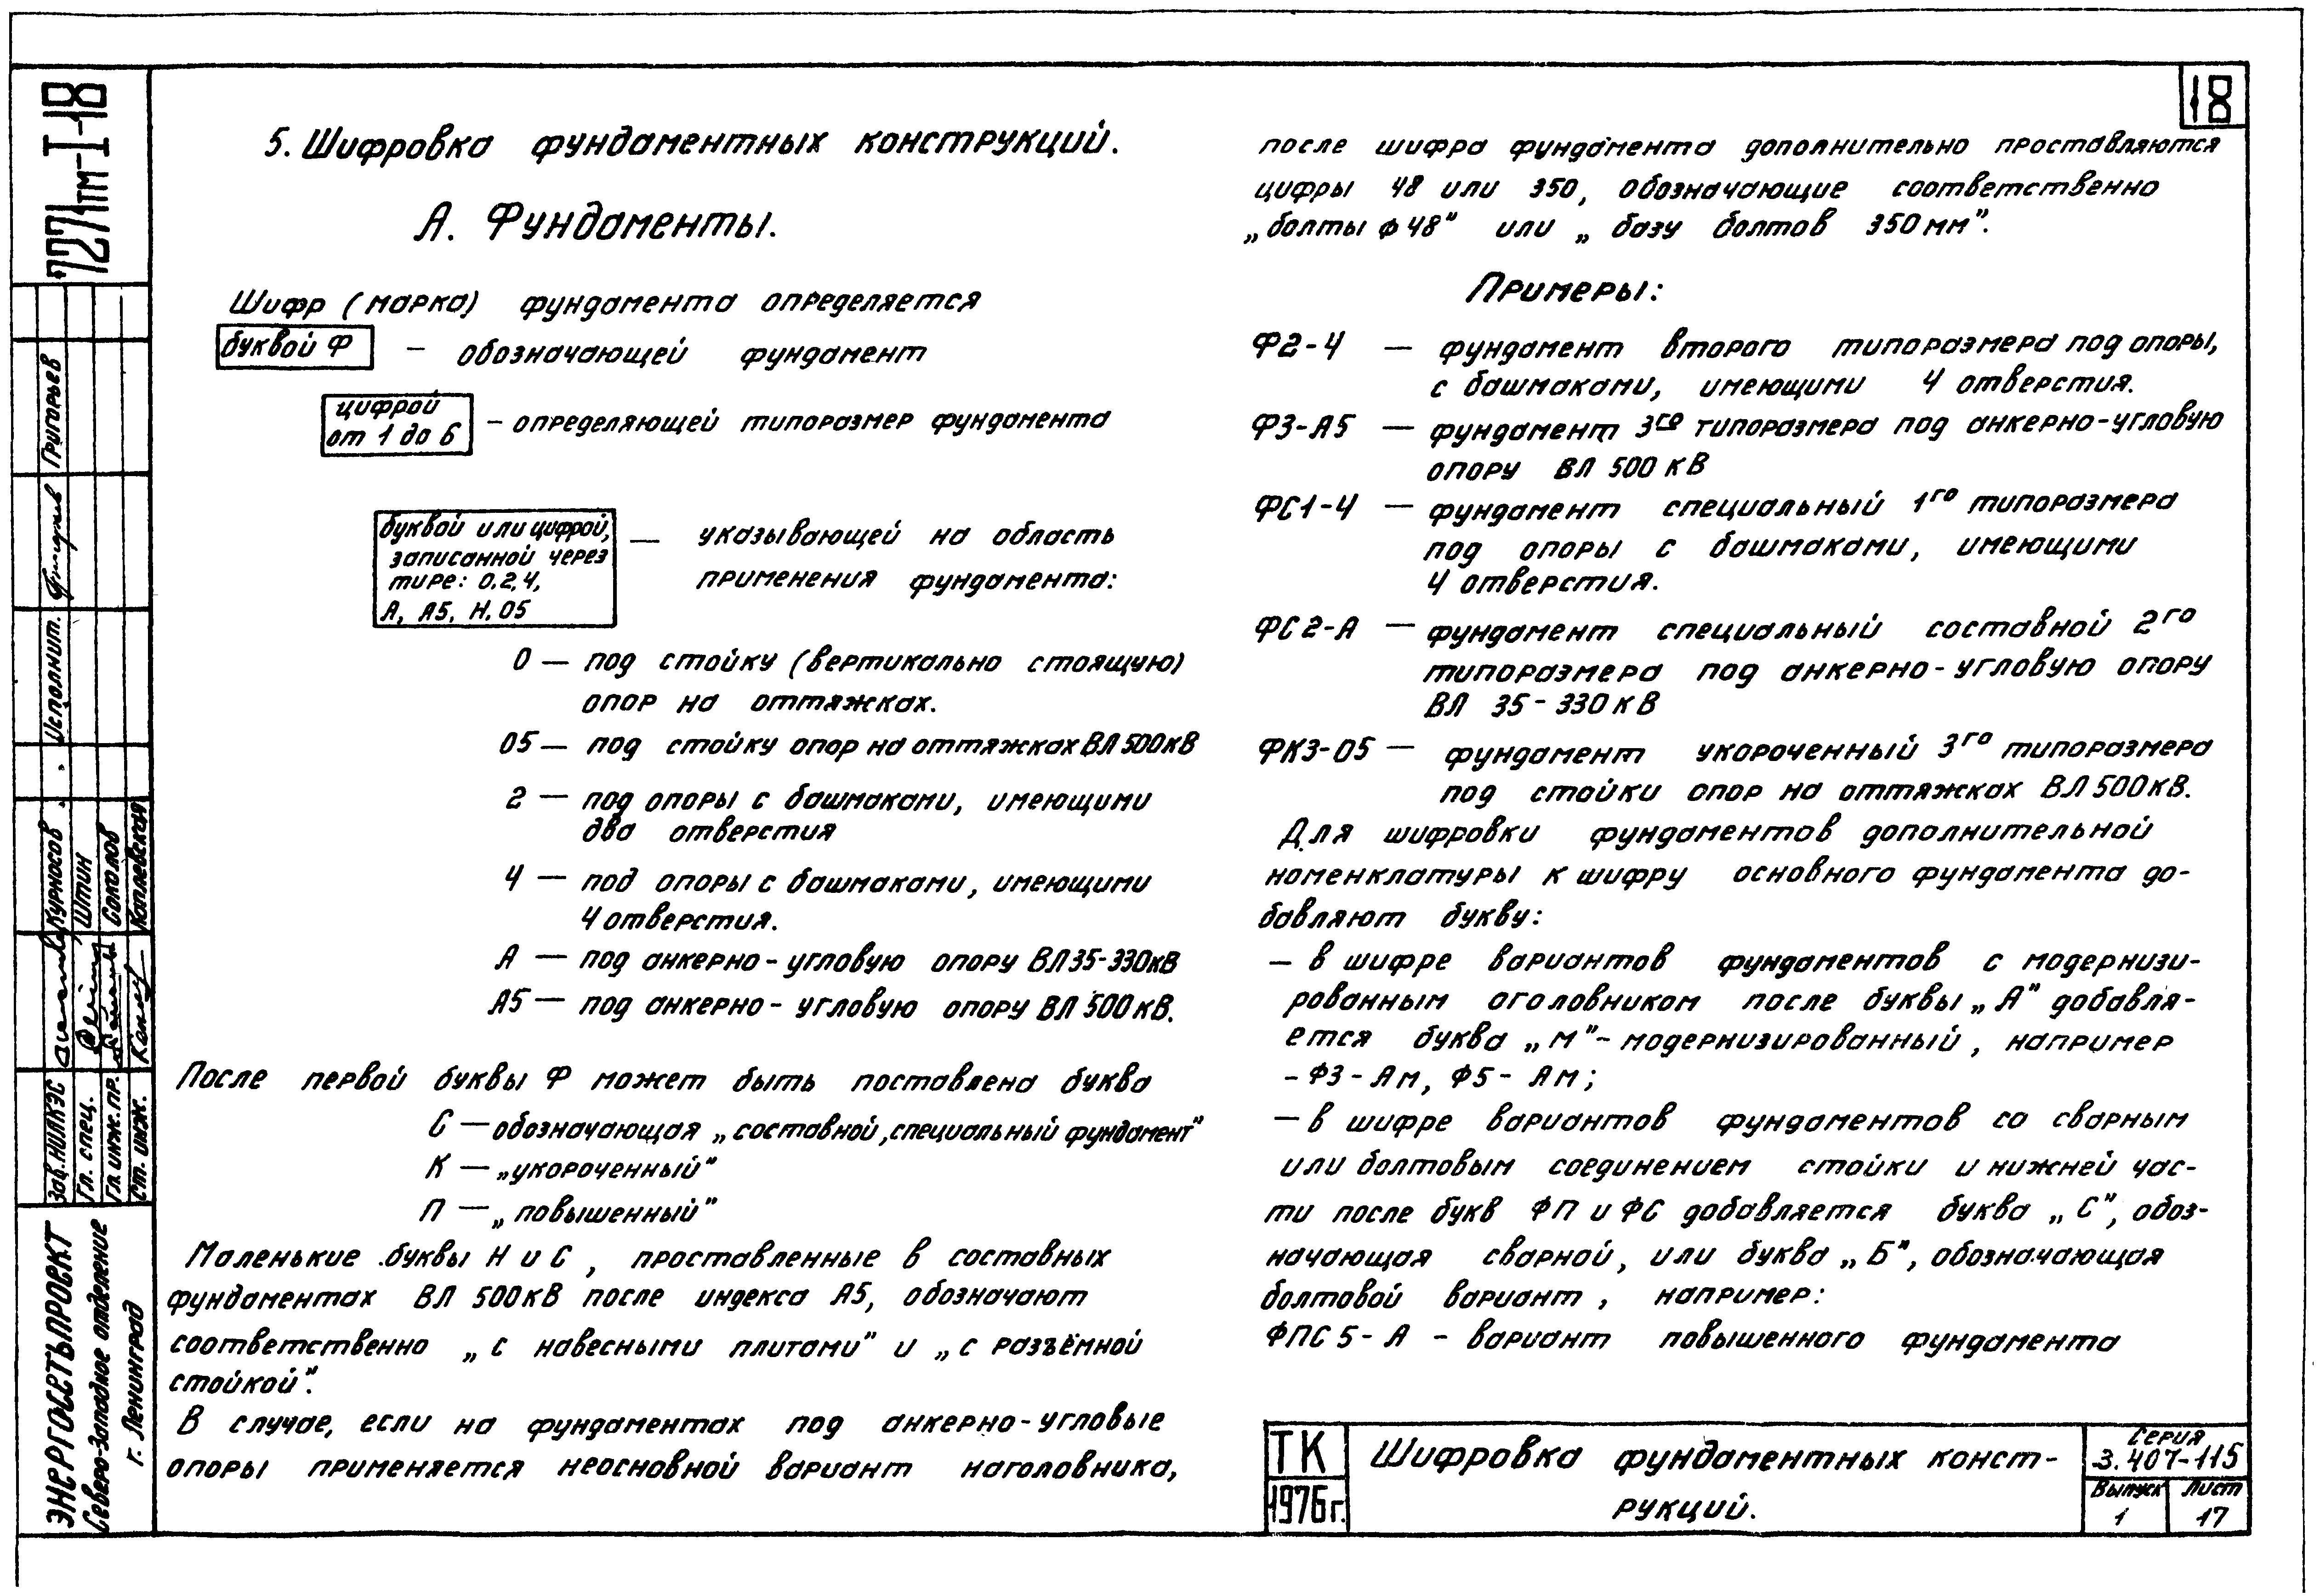 18
5. Шифровка фундаментных конструкций.
А. Фундаменты.
Шифр (марка) фундамента определяется
буквой Ф — обозначающей фундамент
цифрой
от 1 до 6 — определяющей типоразмер фундамента
буквой или цифрой,
записанной через
тире: 0.2,4,
А, А5, Н, 05
— указывающей на область
применения фундамента:
0 — под стойку (вертикально стоящую)
опор на оттяжках.
05 — под стойку опор на оттяжках ВЛ 500кВ
2 — под опоры с башмаками, имеющими
два отверстия
4 — под опоры с башмаками, имеющими
4 отверстия.
А — под анкерно-угловую опору ВЛ 35-330кВ
А5 — под анкерно-угловую опору ВЛ 500кВ.
После первой буквы Ф может быть поставлена буква
С — обозначающая „составной, специальный фундамент"
К — „укороченный"
П — „повышенный"
Маленькие буквы Н и С, проставленные в составных
фундаментах ВЛ 500кВ после индекса А5, обозначают
соответственно „с навесными плитами" и „с разъёмной
стойкой".
В случае, если на фундаментах под анкерно-угловые
опоры применяется неосновной вариант наголовника,
после шифра фундамента дополнительно проставляются
цифры 48 или 350, обозначающие соответственно
„болты ф 48" или „базу болтов 350мм".
Примеры:
Ф2-4 — фундамент второго типоразмера под опоры,
с башмаками, имеющими 4 отверстия.
Ф3-А5 — фундамент 3го типоразмера под анкерно-угловую
опору ВЛ 500кВ
ФС1-4 — фундамент специальный 1го типоразмера
под опоры с башмаками, имеющими
4 отверстия.
ФС2-А — фундамент специальный составной 2го
типоразмера под анкерно-угловую опору
ВЛ 35-330кВ
ФК3-05 — фундамент укороченный 3го типоразмера
под стойки опор на оттяжках ВЛ 500кВ.
Для шифровки фундаментов дополнительной
номенклатуры к шифру основного фундамента до-
бавляют букву:
— в шифре вариантов фундаментов с модернизи-
рованным оголовником после буквы „А" добавля-
ется буква „М" - модернизированный, например
- Ф3-АМ, Ф5-АМ;
— в шифре вариантов фундаментов со сварным
или болтовым соединением стойки и нижней час-
ти после букв ФП и ФС добавляется буква „С", обоз-
начающая сварной, или буква „Б", обозначающая
болтовой вариант, например:
ФПС 5-А - вариант повышенного фундамента
ТК
1976г.
Шифровка фундаментных конст-
рукций.
Серия
3.407-115
Выпуск Лист
1 17
7271тм-I-18
Исполнит. Григорьев
Зав.НИЛКЭС Курносов
Гл. спец. Штин
Гл. инж. пр. Соколов
Ст. инж. Каплевская
ЭНЕРГОСЕТЬПРОЕКТ
Северо-Западное отделение
г. Ленинград